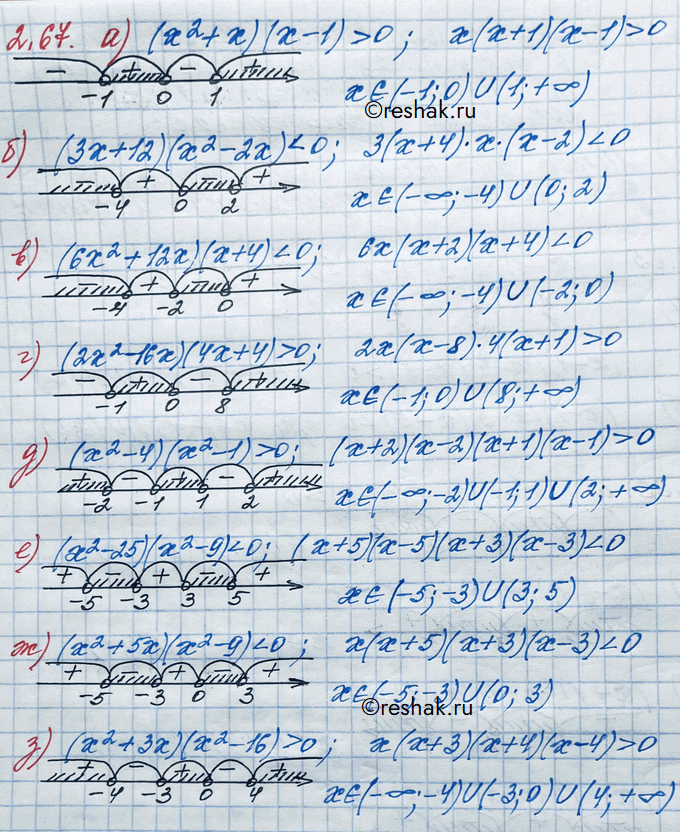 2.67. а) (x²+x)(x-1)>0; x(x+1)(x-1)>0
- + - +
-1 0 1 x∈(-1;0)∪(1;+∞)
©reshak.ru
б) (3x+12)(x²-2x)<0; 3(x+4)·x·(x-2)<0
- + - +
-4 0 2 x∈(-∞;-4)∪(0;2)
в) (6x²+12x)(x+4)<0; 6x(x+2)(x+4)<0
- + - +
-4 -2 0 x∈(-∞;-4)∪(-2;0)
г) (2x²-16x)(4x+4)>0; 2x(x-8)·4(x+1)>0
- + - +
-1 0 8 x∈(-1;0)∪(8;+∞)
д) (x²-4)(x²-1)>0; (x+2)(x-2)(x+1)(x-1)>0
+ - + - +
-2 -1 1 2 x∈(-∞;-2)∪(-1;1)∪(2;+∞)
е) (x²-25)(x²-9)<0; (x+5)(x-5)(x+3)(x-3)<0
+ - + - +
-5 -3 3 5 x∈(-5;-3)∪(3;5)
ж) (x²+5x)(x²-9)<0; x(x+5)(x+3)(x-3)<0
+ - + - +
-5 -3 0 3 x∈(-5;-3)∪(0;3)
©reshak.ru
з) (x²+3x)(x²-16)>0; x(x+3)(x+4)(x-4)>0
+ - + - +
-4 -3 0 4 x∈(-∞;-4)∪(-3;0)∪(4;+∞)